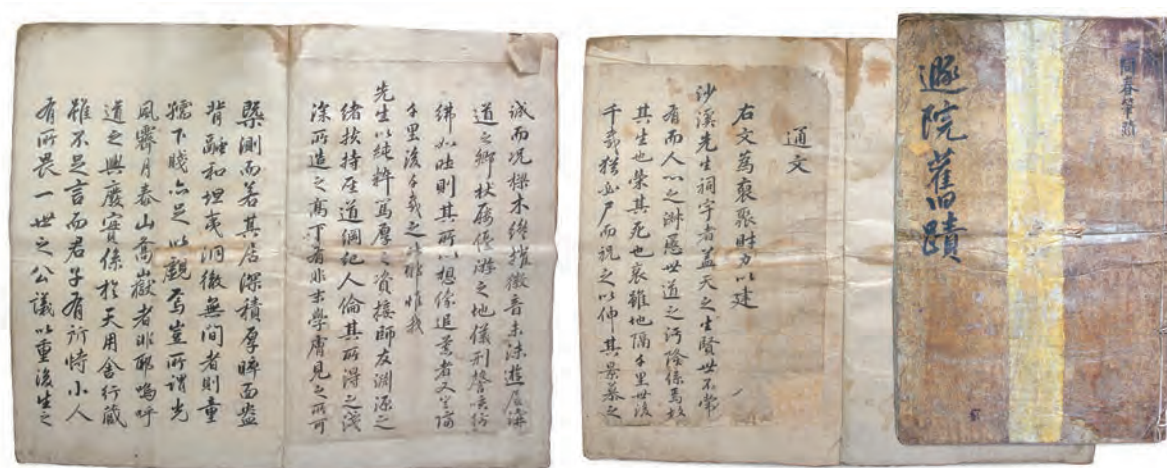 遯院舊蹟
同春筆蹟
通文
右文爲裒聚財力以建
沙溪先生祠宇者盖天之生賢世不常
有而人心之淑慝世道之汚隆係焉故
其生也榮其死也哀雖地隔千里世後
千載猶必尸而祝之以伸其景慕之
誠而況樑木纔摧徽音未沫遊居講
道之鄕杖屨優游之地儀刑謦咳彷
彿如昨則其所以想像追慕者又豈隔
千里後千載之比耶惟我
先生以純粹篤厚之資接師友淵源之
緖扶持道綱紀人倫其所得之淺
深所造之高下有非末學膚見之所可
槩測而若其居深積厚睟面盎
背融和坦夷洞徹無間者則童
孺下賤亦足以觀焉豈所謂光
風霽月泰山喬嶽者非耶嗚呼
道之興廢實係於天用舍行藏
雖不足言而君子有所恃小人
有所畏一世之公議以重後生之